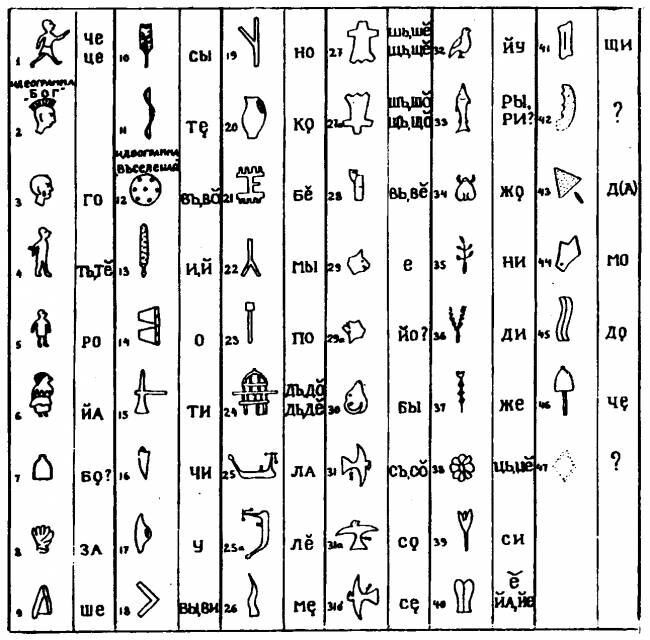 1 ЧЕ ЦЕ 10 СЫ 19 НО 27 ШЬ,ШӖ ЩЬ,ЩӖ 32 ЙУ 41 ЩИ
ИДЕОГРАММА "БОГ"
2 11 ТѢ̨ 20 КǪ 27а ШЪ,ШО̆ ЩЪ,ЩО̆ 33 РЫ, РИ? 42 ?
ИДЕОГРАММА ВЪСЕЛЕНАЙ
3 ГО 12 ВЪ,ВО̆ 21 БӖ 28 ВЬ,ВӖ 34 ЖǪ 43 Д(А)
4 ТЬ,ТӖ 13 И,Й 22 МЫ 29 Е 35 НИ 44 МО
5 РО 14 О 23 ПО 29а ЙО? 36 ДИ 45 ДǪ
6 ЙА 15 ТИ 24 ДЪ,ДО̆ ДЬ,ДӖ 30 БЫ 37 ЖЕ 46 ЧĘ
7 БǪ? 16 ЧИ 25 ЛА 31 СЪ,СО̆ 38 ЦЬ,ЦӖ 47 ?
8 ЗА 17 У 25а ЛӖ 31а СǪ 39 СИ
9 ШЕ 18 ВЫ,ВИ 26 МĘ 31б СĘ 40 Ӗ ЙА,ЙЕ